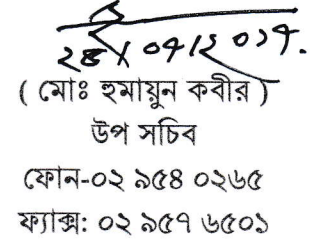 ( মোঃ হুমায়ুন কবীর )
উপ সচিব
ফোন-০২ ৯৫৪ ০২৬৫
ফ্যাক্স: ০২ ৯৫৭ ৬৫০১